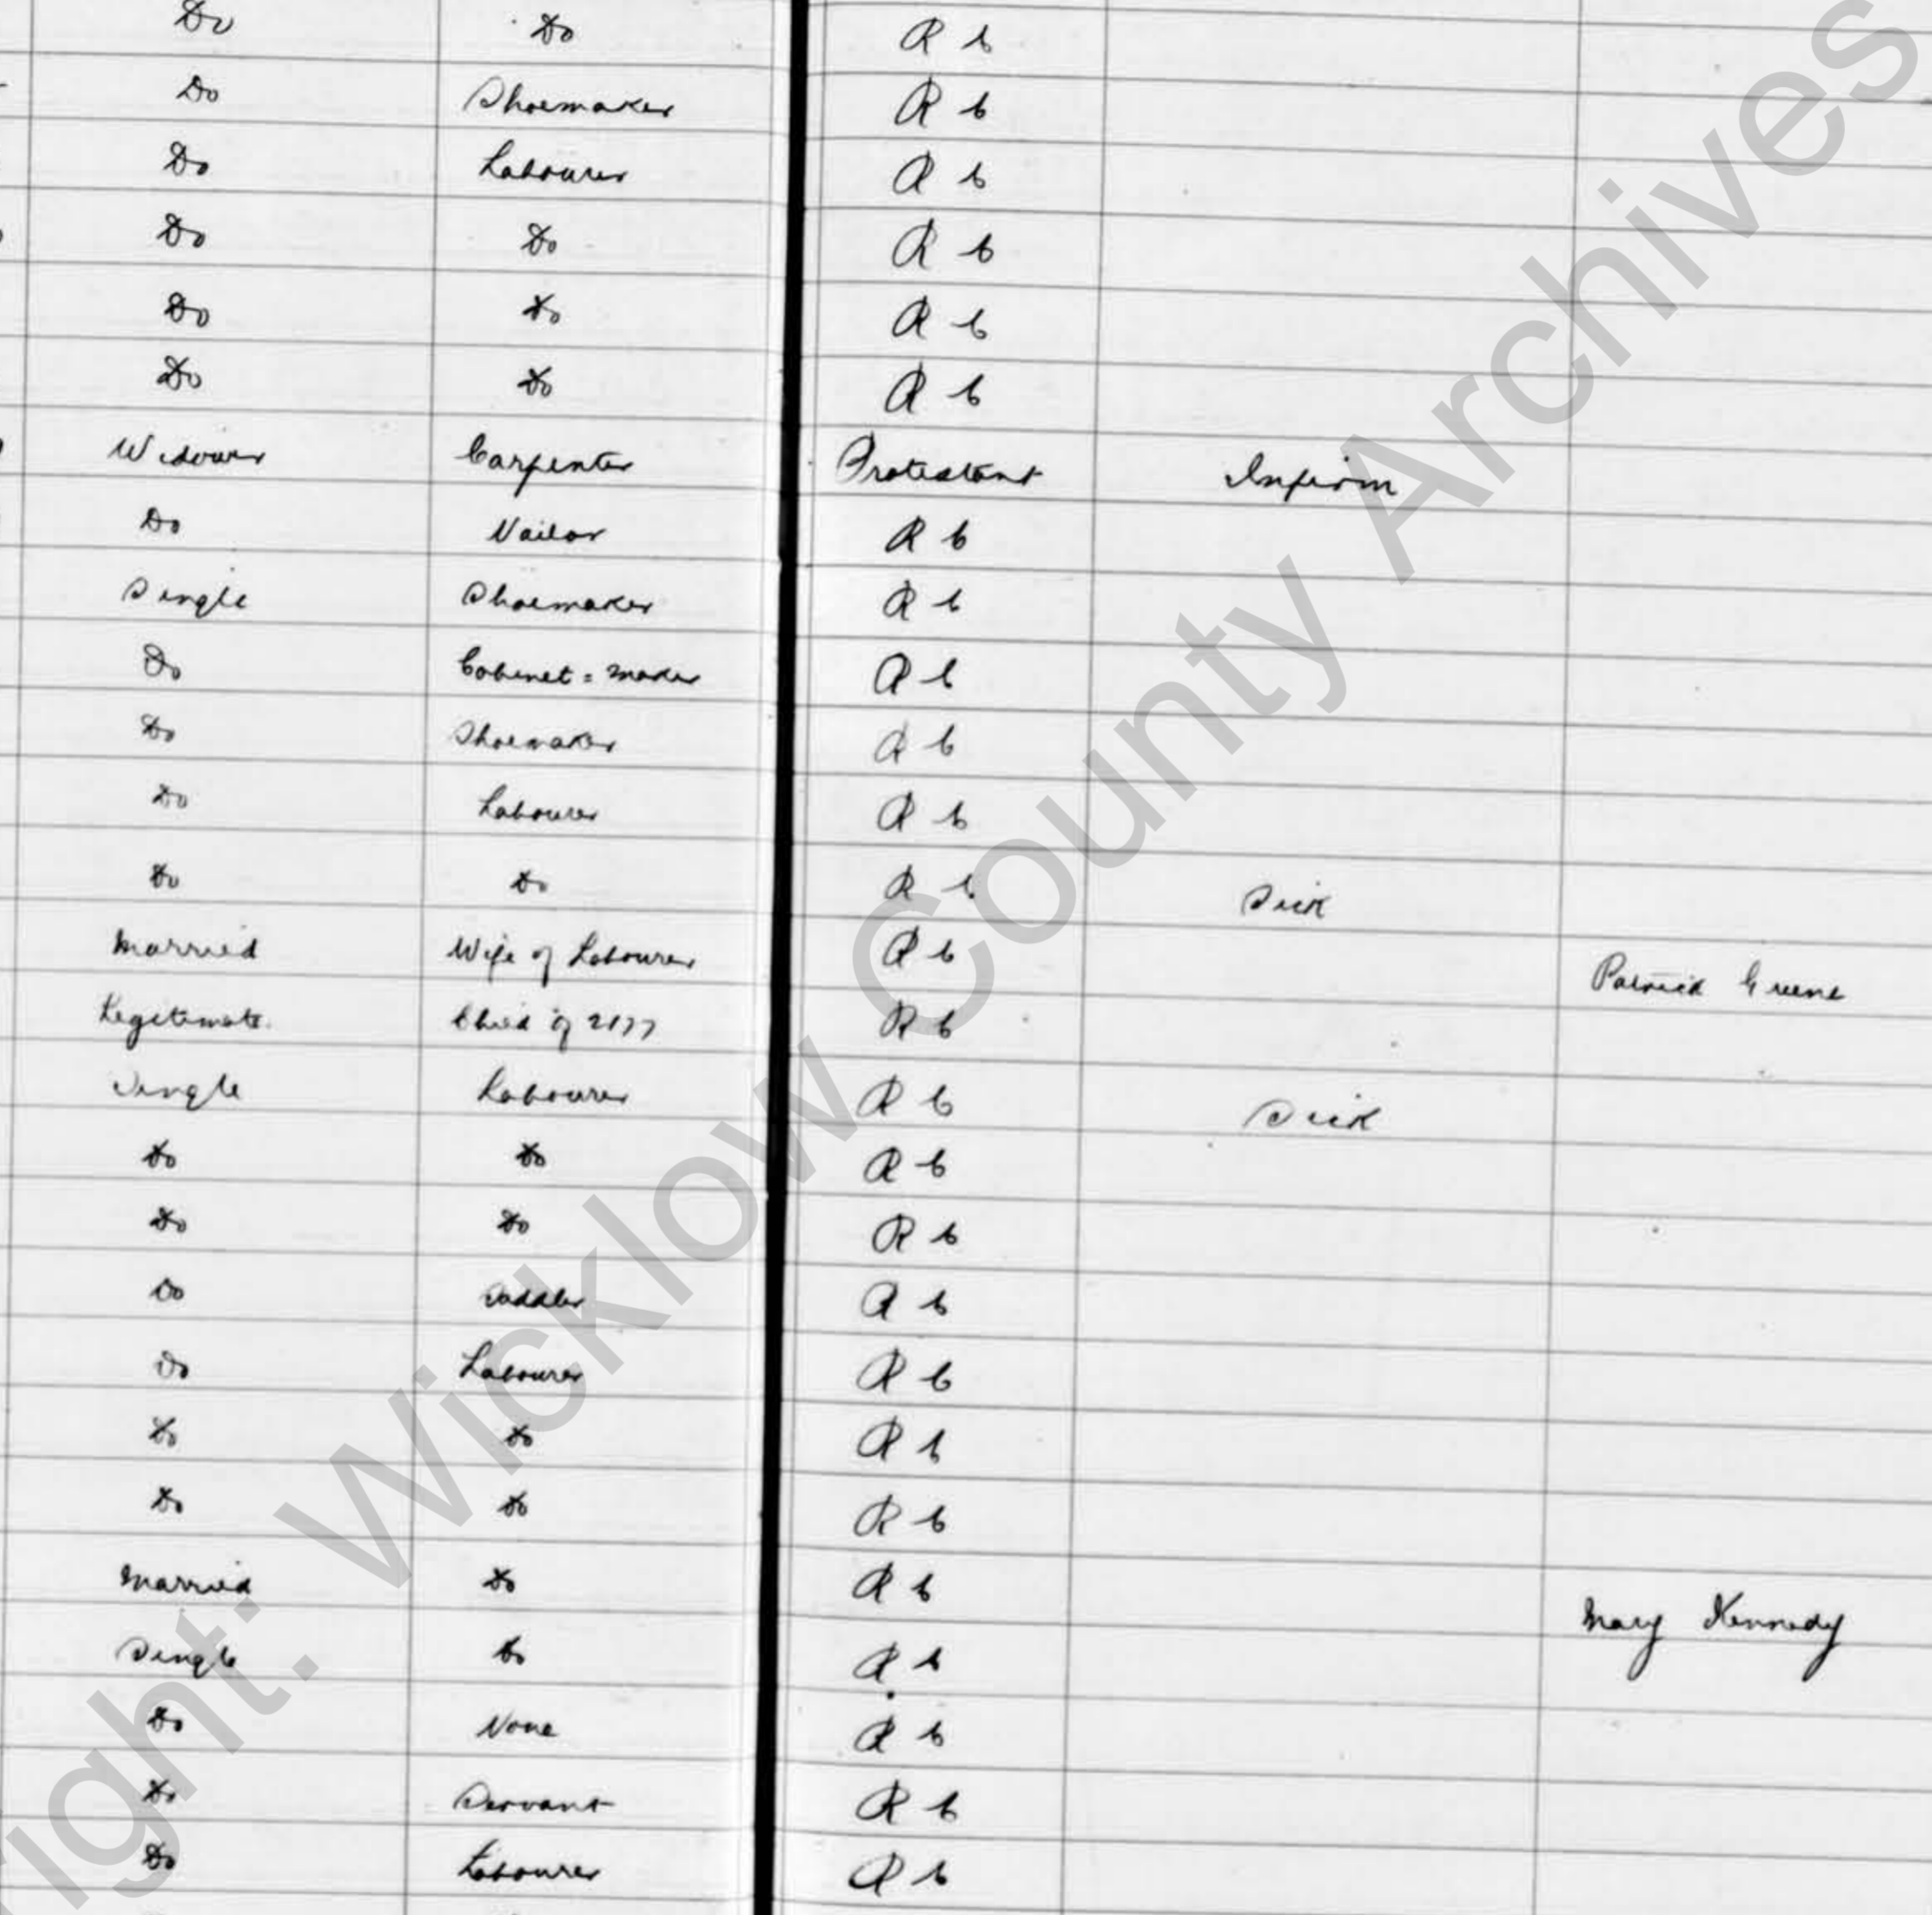 Do Do R C
Do Shoemaker R C
Do Labourer R C
Do Do R C
Do Do R C
Do Do R C
Widower Carpenter Protestant Infirm
Do Nailor R C
Single Shoemaker R C
Do Cabinet = maker R C
Do Shoemaker R C
Do Labourer R C
Do Do R C Sick
Married Wife of Labourer R C Patrick Greene
Legitimate Child of 2177 R C
Single Labourer R C Sick
Do Do R C
Do Do R C
Do Saddler R C
Do Labourer R C
Do Do R C
Do Do R C
Married Do R C Mary Kennedy
Single Do R C
Do None R C
Do Servant R C
Do Labourer R C
ight: Wicklow County Archives